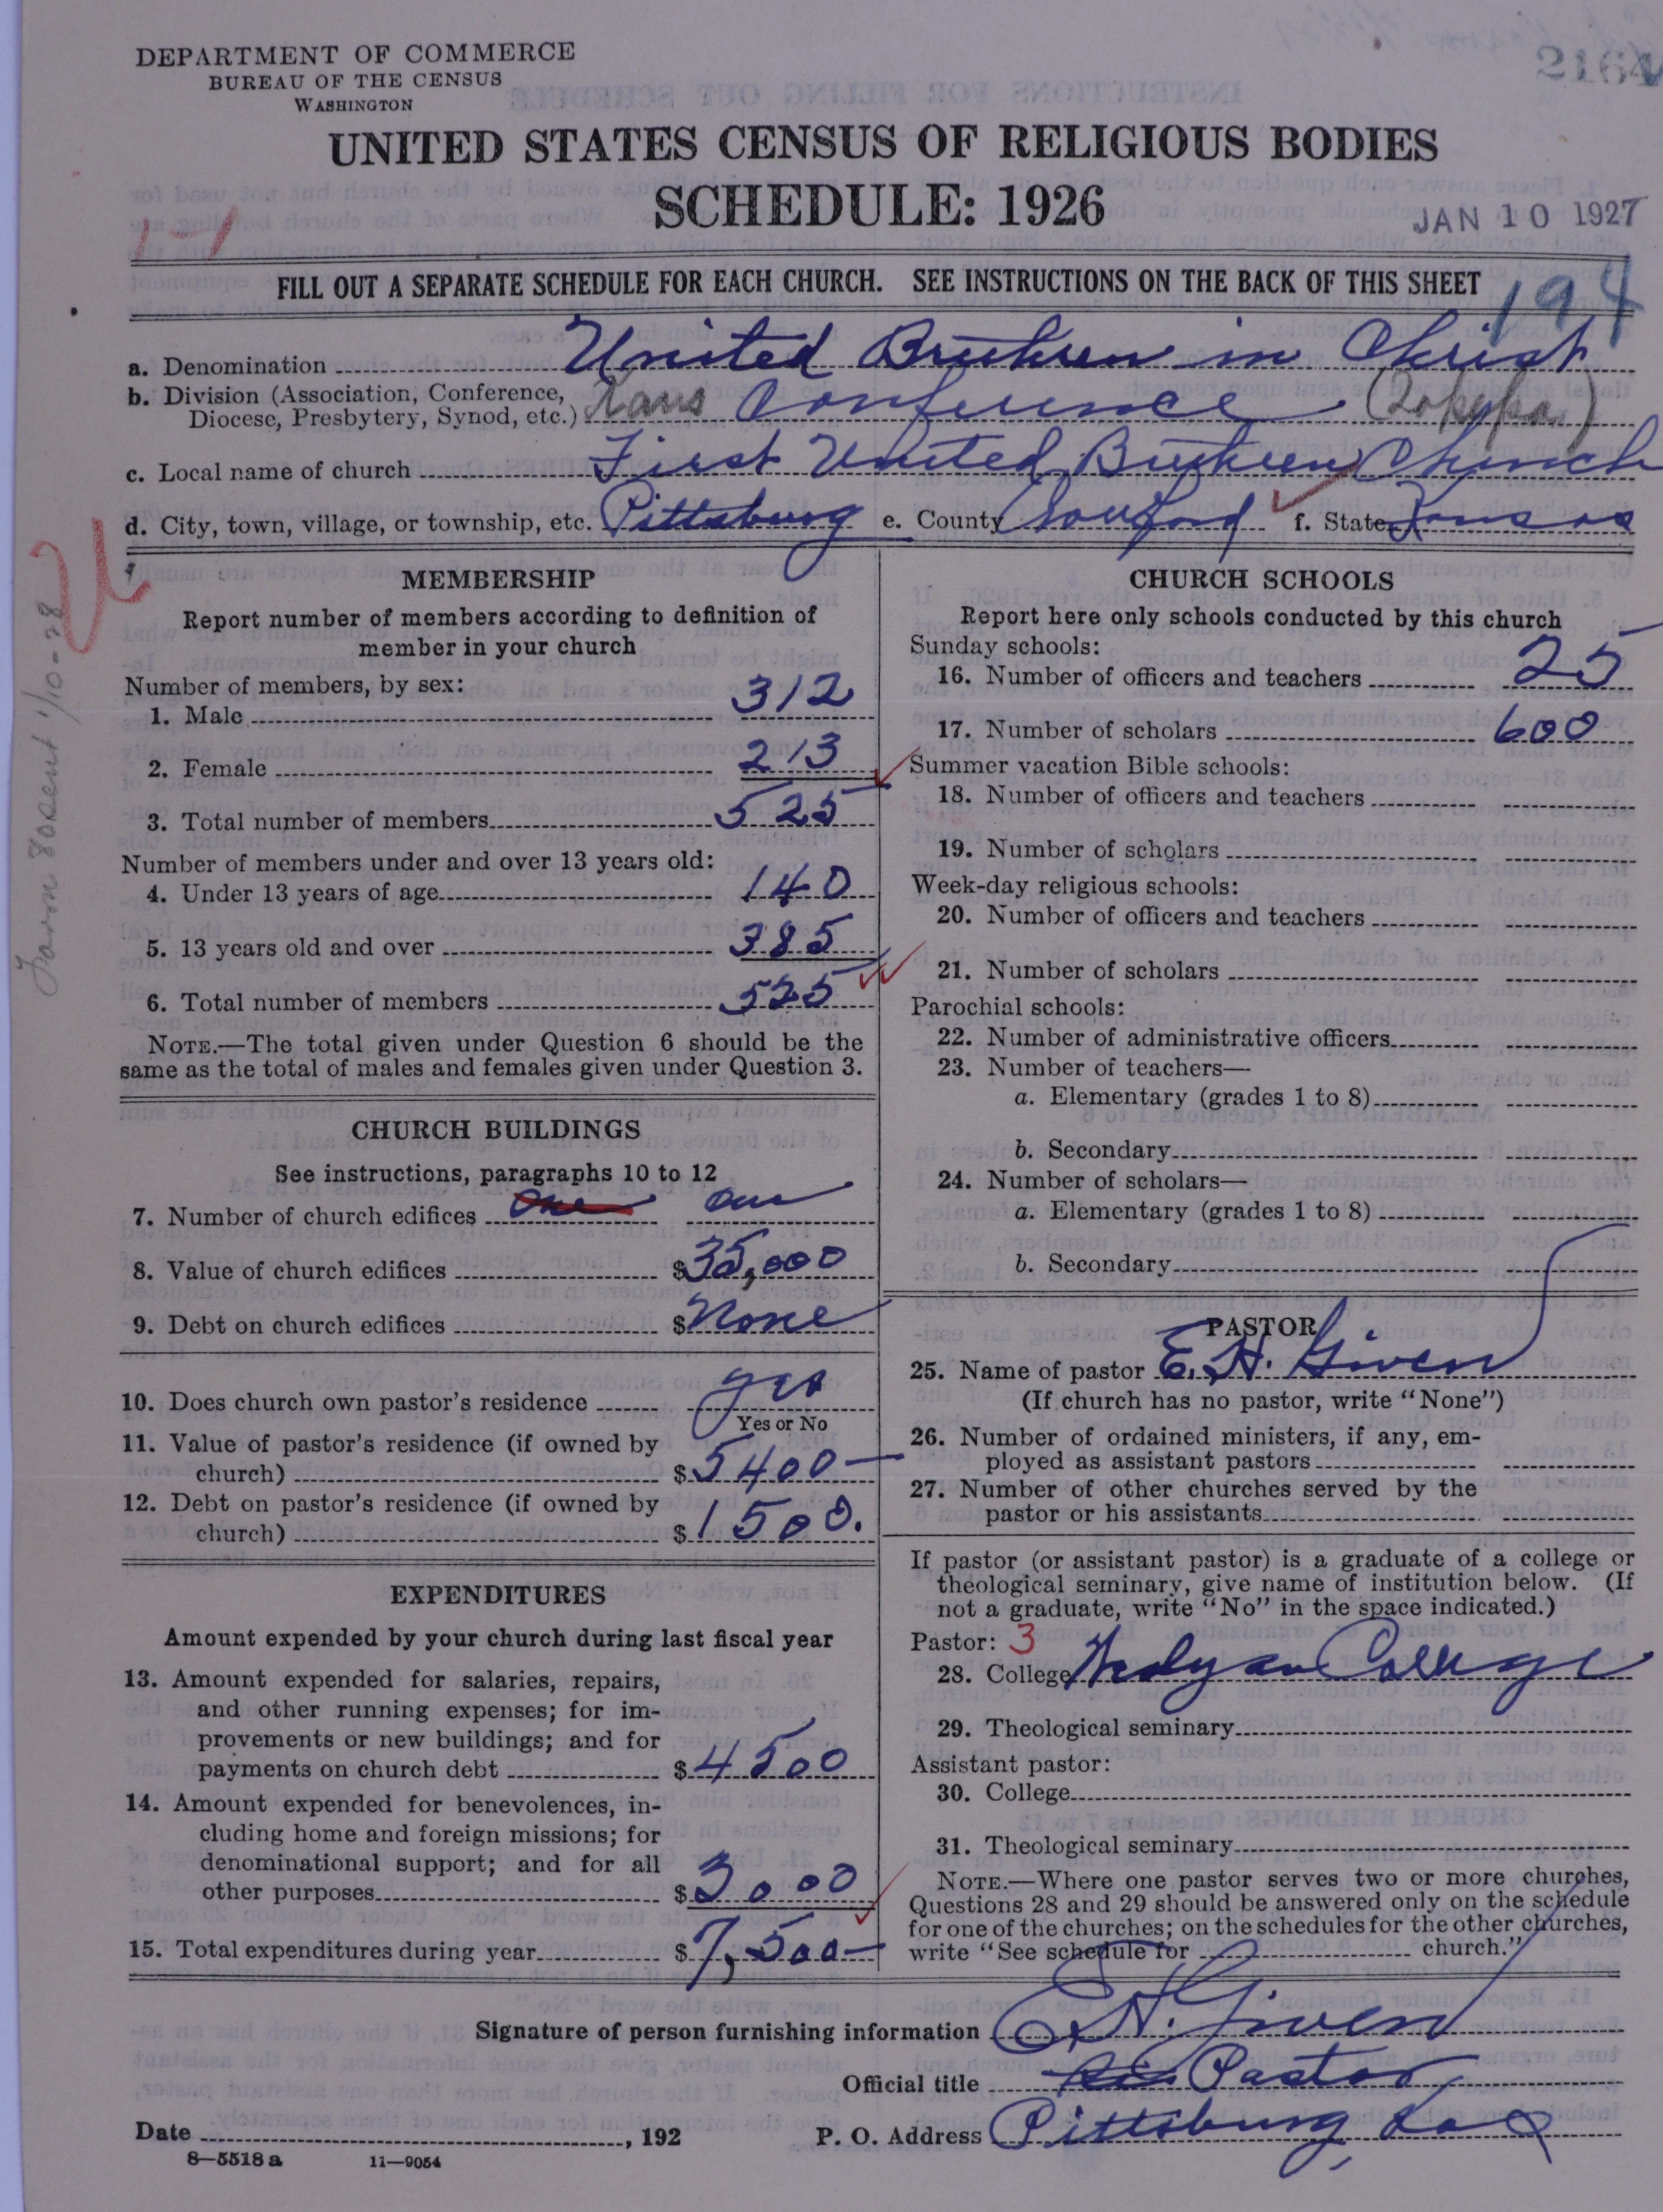 DEPARTMENT OF COMMERCE
BUREAU OF THE CENSUS
WASHINGTON
2164
UNITED STATES CENSUS OF RELIGIOUS BODIES
SCHEDULE: 1926
JAN 10 1927
1-1
FILL OUT A SEPARATE SCHEDULE FOR EACH CHURCH. SEE INSTRUCTIONS ON THE BACK OF THIS SHEET
194
a. Denomination United Brethren in Christ
b. Division (Association, Conference,
Diocese, Presbytery, Synod, etc.) Kans Conference (Topeka)
c. Local name of church First United Brethren Church
d. City, town, village, or township, etc. Pittsburg e. County Crawford f. State Kansas
Form 80 sent 1/10-28
MEMBERSHIP
Report number of members according to definition of
member in your church
Number of members, by sex:
1. Male 312
2. Female 213
3. Total number of members 525
Number of members under and over 13 years old:
4. Under 13 years of age 140
5. 13 years old and over 385
6. Total number of members 525
NOTE.—The total given under Question 6 should be the
same as the total of males and females given under Question 3.
CHURCH BUILDINGS
See instructions, paragraphs 10 to 12
7. Number of church edifices One one
8. Value of church edifices $35,000
9. Debt on church edifices $None
10. Does church own pastor's residence yes
Yes or No
11. Value of pastor's residence (if owned by
church) $5400—
12. Debt on pastor's residence (if owned by
church) $1500.
EXPENDITURES
Amount expended by your church during last fiscal year
13. Amount expended for salaries, repairs,
and other running expenses; for im-
provements or new buildings; and for
payments on church debt $4500
14. Amount expended for benevolences, in-
cluding home and foreign missions; for
denominational support; and for all
other purposes $3000
15. Total expenditures during year $7,500—
CHURCH SCHOOLS
Report here only schools conducted by this church
Sunday schools:
16. Number of officers and teachers 25
17. Number of scholars 600
Summer vacation Bible schools:
18. Number of officers and teachers
19. Number of scholars
Week-day religious schools:
20. Number of officers and teachers
21. Number of scholars
Parochial schools:
22. Number of administrative officers
23. Number of teachers—
a. Elementary (grades 1 to 8)
b. Secondary
24. Number of scholars—
a. Elementary (grades 1 to 8)
b. Secondary
PASTOR
25. Name of pastor E. H. Given
(If church has no pastor, write "None")
26. Number of ordained ministers, if any, em-
ployed as assistant pastors
27. Number of other churches served by the
pastor or his assistants
If pastor (or assistant pastor) is a graduate of a college or
theological seminary, give name of institution below. (If
not a graduate, write "No" in the space indicated.)
Pastor: 3
28. College Wesleyan College
29. Theological seminary
Assistant pastor:
30. College
31. Theological seminary
NOTE.—Where one pastor serves two or more churches,
Questions 28 and 29 should be answered only on the schedule
for one of the churches; on the schedules for the other churches,
write "See schedule for church."
Signature of person furnishing information E. H. Given
Official title Pastor
Date , 192
P. O. Address Pittsburg, Kas
8—5518 a 11—9054